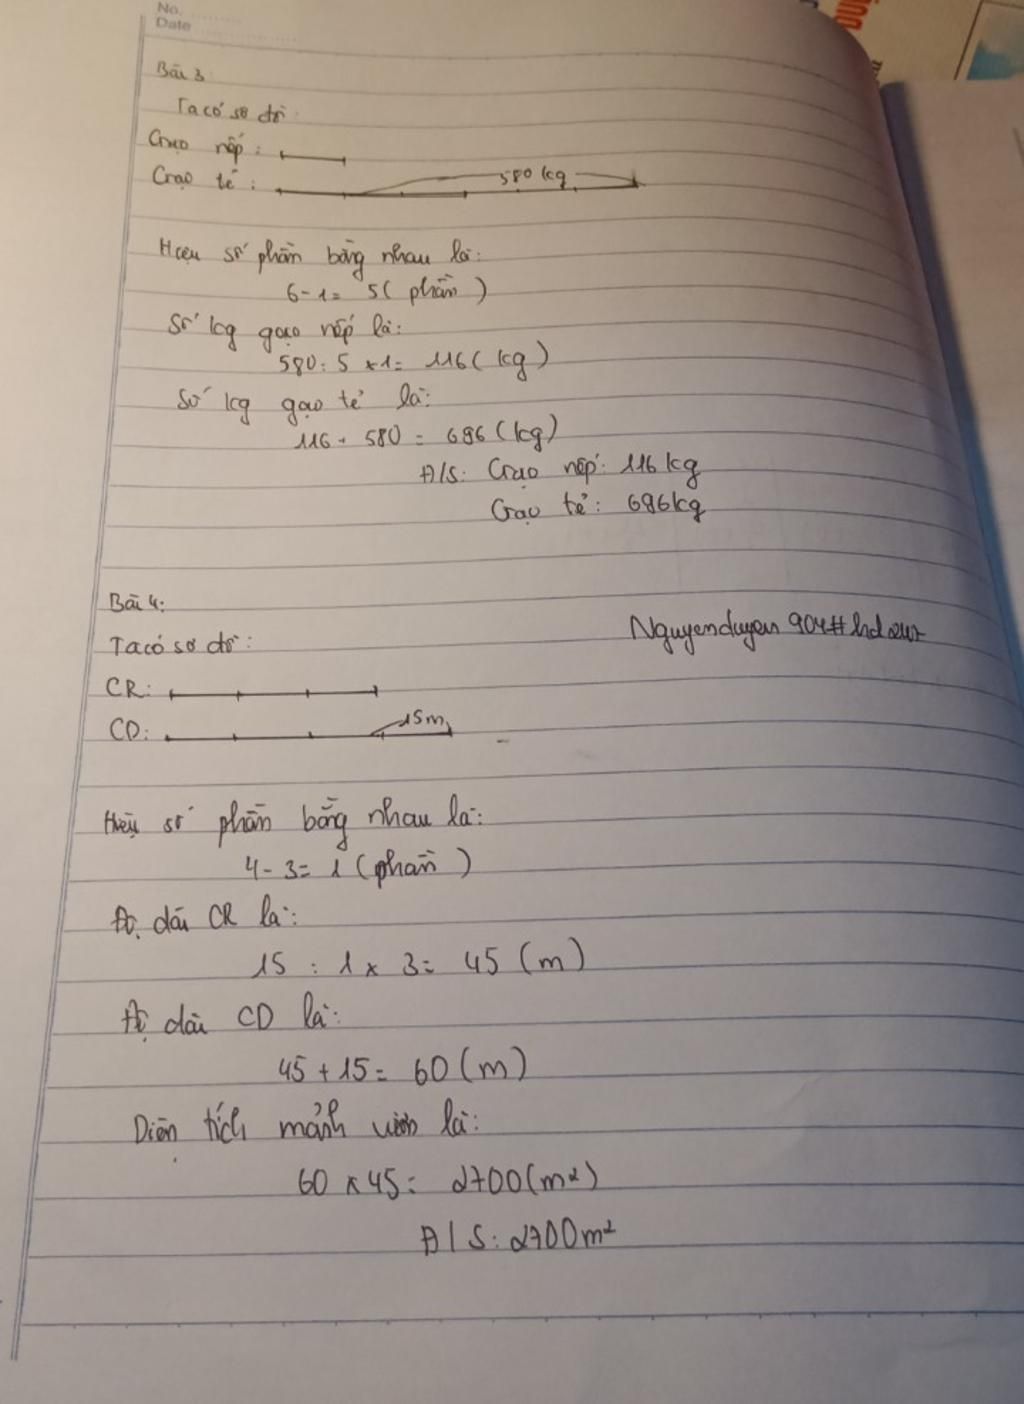 No.
Date
Bài 3:
Ta có sơ đồ:
Gạo nếp:
Gạo tẻ: 580 kg
Hiệu số phần bằng nhau là:
6 - 1 = 5 (phần)
Số kg gạo nếp là:
580 : 5 x 1 = 116 (kg)
Số kg gạo tẻ là:
116 + 580 = 696 (kg)
Đ/S: Gạo nếp: 116 kg
Gạo tẻ: 696 kg
Bài 4:
Ta có sơ đồ:
Nguyenduyen 904#
CR:
CD: 15m
Hiệu số phần bằng nhau là:
4 - 3 = 1 (phần)
Độ dài CR là:
15 : 1 x 3 = 45 (m)
Độ dài CD là:
45 + 15 = 60 (m)
Diện tích mảnh vườn là:
60 x 45 = 2700 (m²)
Đ/S: 2700 m²